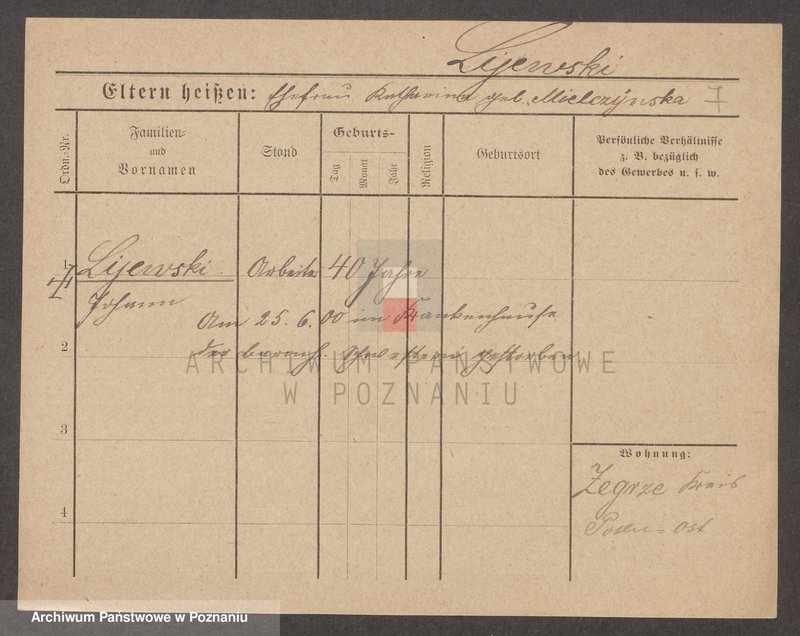 Lijewski
Eltern heißen: Ehefrau Katharina geb. Mielczÿnska
Ordn.-Nr.
Familien-
und
Vornamen
Stand
Geburts-
Tag
Monat
Jahr
Religion
Geburtsort
Persönliche Verhältnisse
z. B. bezüglich
des Gewerbes u. s. w.
1
Lijewski. Arbeiter 40 Jahre
Johann
Am 25.6.00 im Krankenhause
2
der barmh. Schwestern gestorben
ARCHIWUM PAŃSTWOWE
W POZNANIU
3
Wohnung:
Zegrze Kreis
4
Posen-Ost
Archiwum Państwowe w Poznaniu